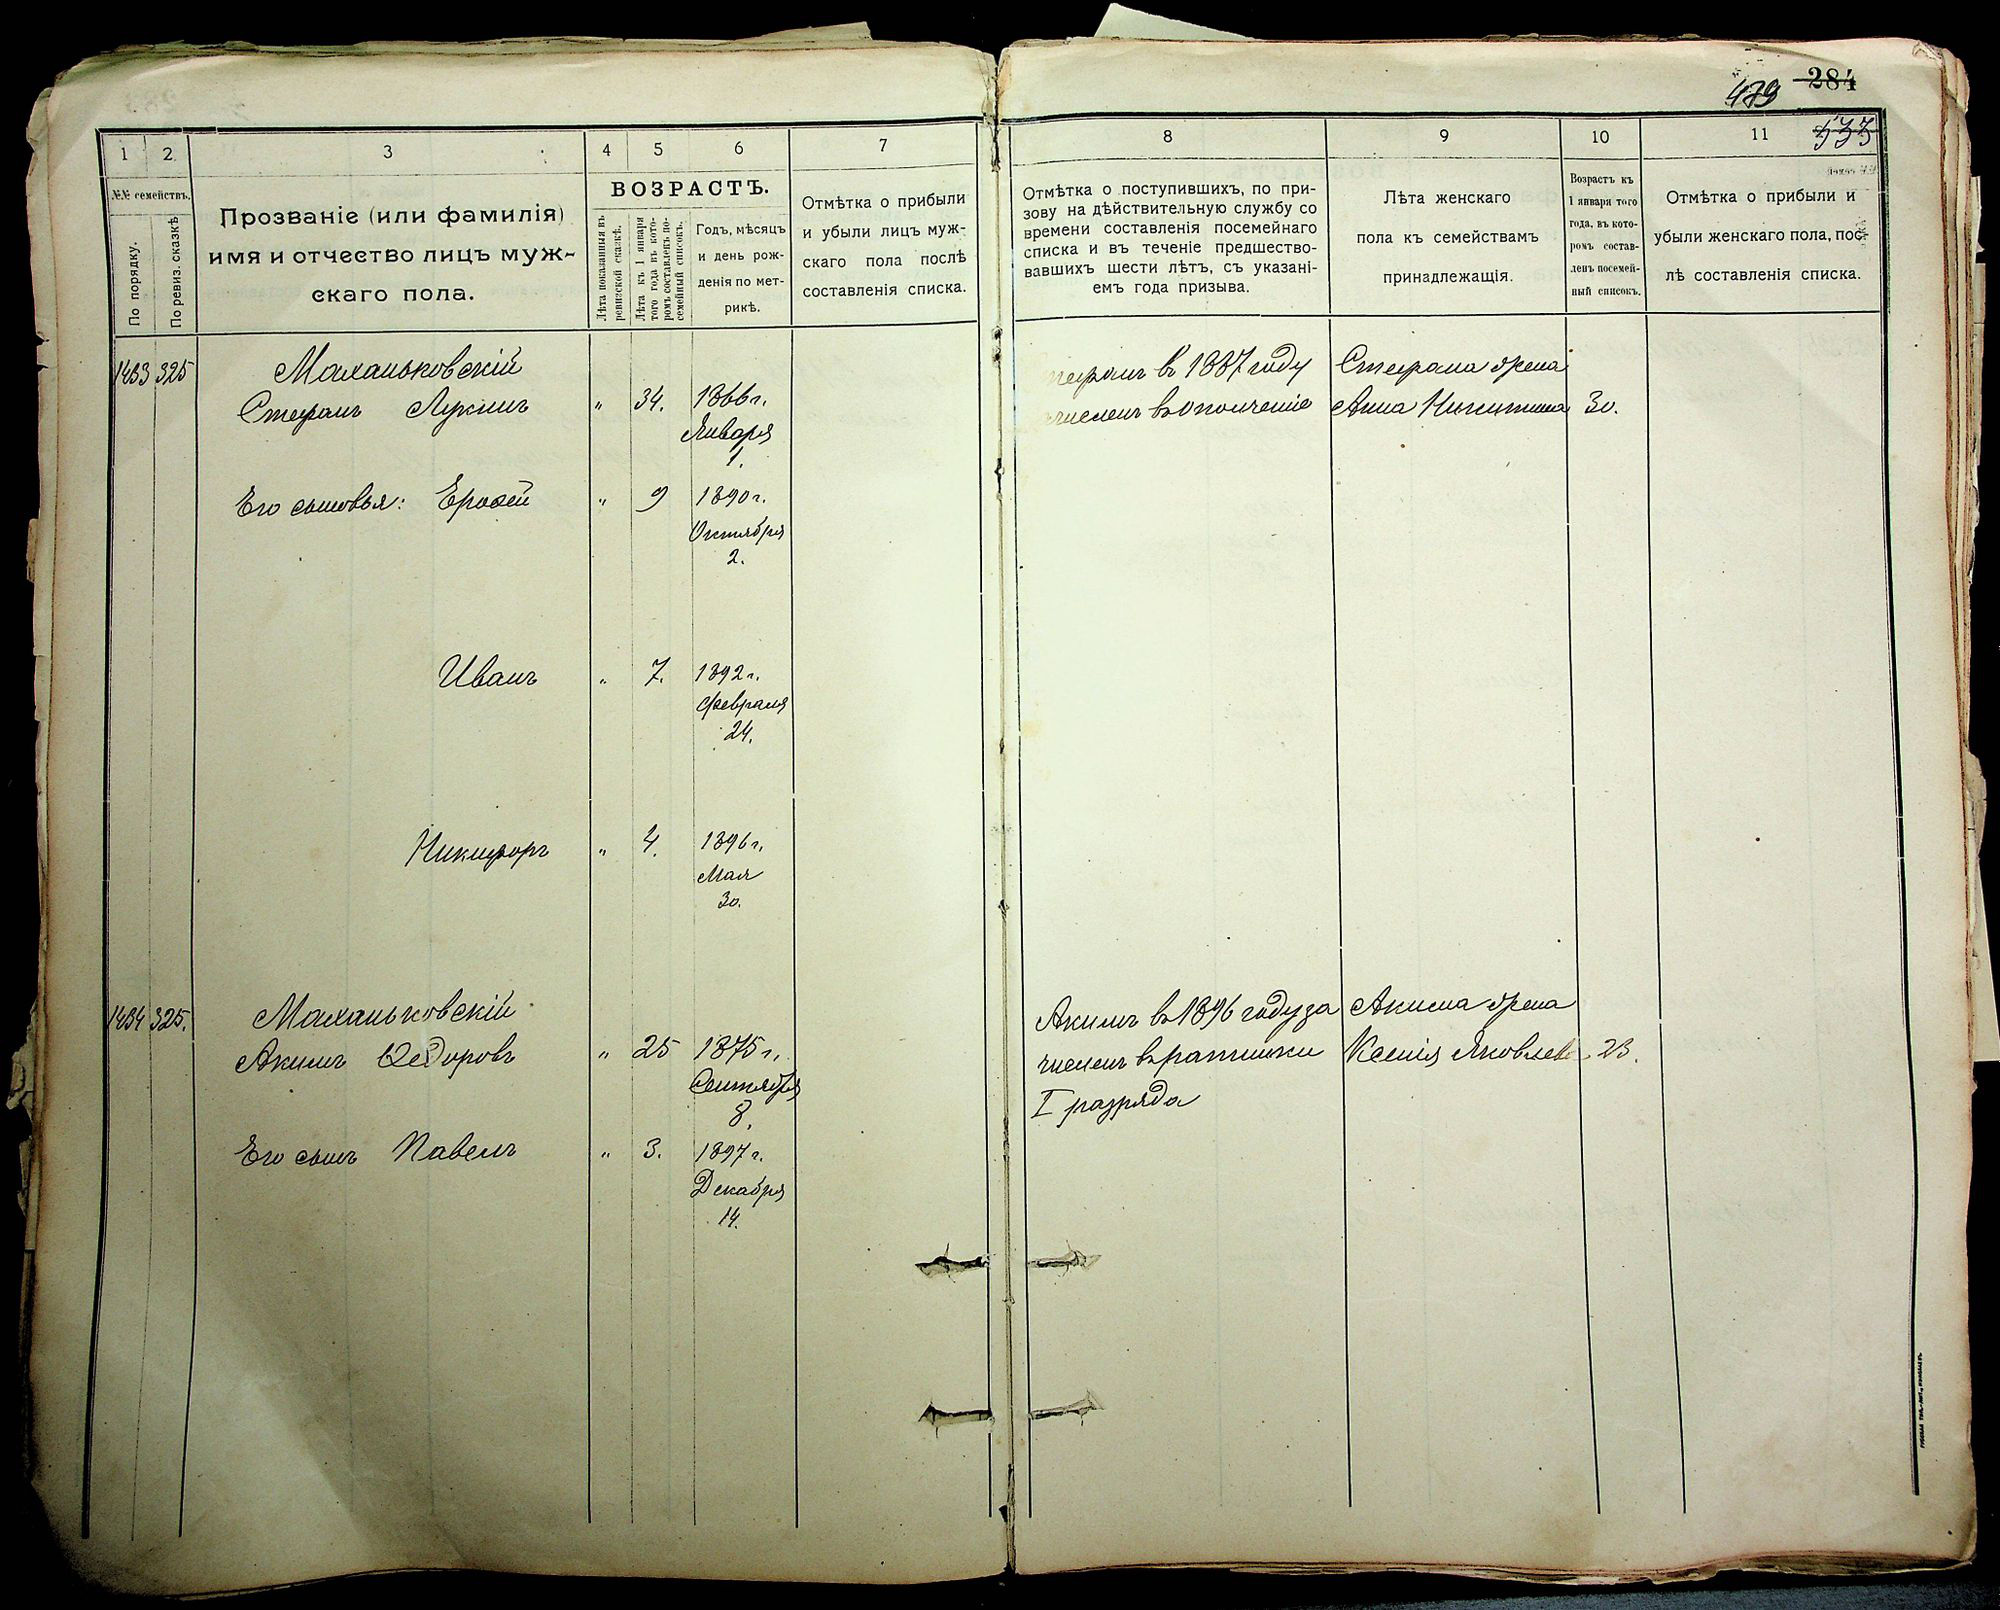 479 284
1
2
3
4
5
6
7
8
9
10
11
533
№№ семействъ.
По порядку.
По ревиз. сказкѣ
Прозваніе (или фамилія)
имя и отчество лицъ муж-
скаго пола.
ВОЗРАСТЪ.
Лѣта показанныя въ
ревизской сказкѣ.
Лѣта къ 1 января
того года въ кото-
ромъ составленъ по-
семейный списокъ.
Годъ, мѣсяцъ
и день рож-
денія по мет-
рикѣ.
Отмѣтка о прибыли
и убыли лицъ муж-
скаго пола послѣ
составленія списка.
Отмѣтка о поступившихъ, по при-
зову на дѣйствительную службу со
времени составленія посемейнаго
списка и въ теченіе предшество-
вавшихъ шести лѣтъ, съ указані-
емъ года призыва.
Лѣта женскаго
пола къ семействамъ
принадлежащія.
Возрастъ къ
1 января того
года, въ кото-
ромъ состав-
ленъ посемей-
ный списокъ.
Отмѣтка о прибыли и
убыли женскаго пола, пос-
лѣ составленія списка.
1433 325 Маханьковскій
Стефанъ Лукинъ " 34. 1866 г.
Января
1.
Его сыновья: Ерофей " 9 1890 г.
Октября
2.
Иванъ " 7. 1892 г.
Февраля
24.
Никифоръ " 4. 1896 г.
Мая
30.
1434 325. Маханьковскій
Акимъ Ѳедоровъ " 25 1875 г.
Сентября
8.
Его сынъ Павелъ " 3. 1897 г.
Декабря
14.
въ 1887 году Стефана жена
въ ополченіе Анна Никитина 30.
Акимъ въ 1896 году за Акима жена
численъ въ ратники Ксенія Яковлева 23.
I разряда